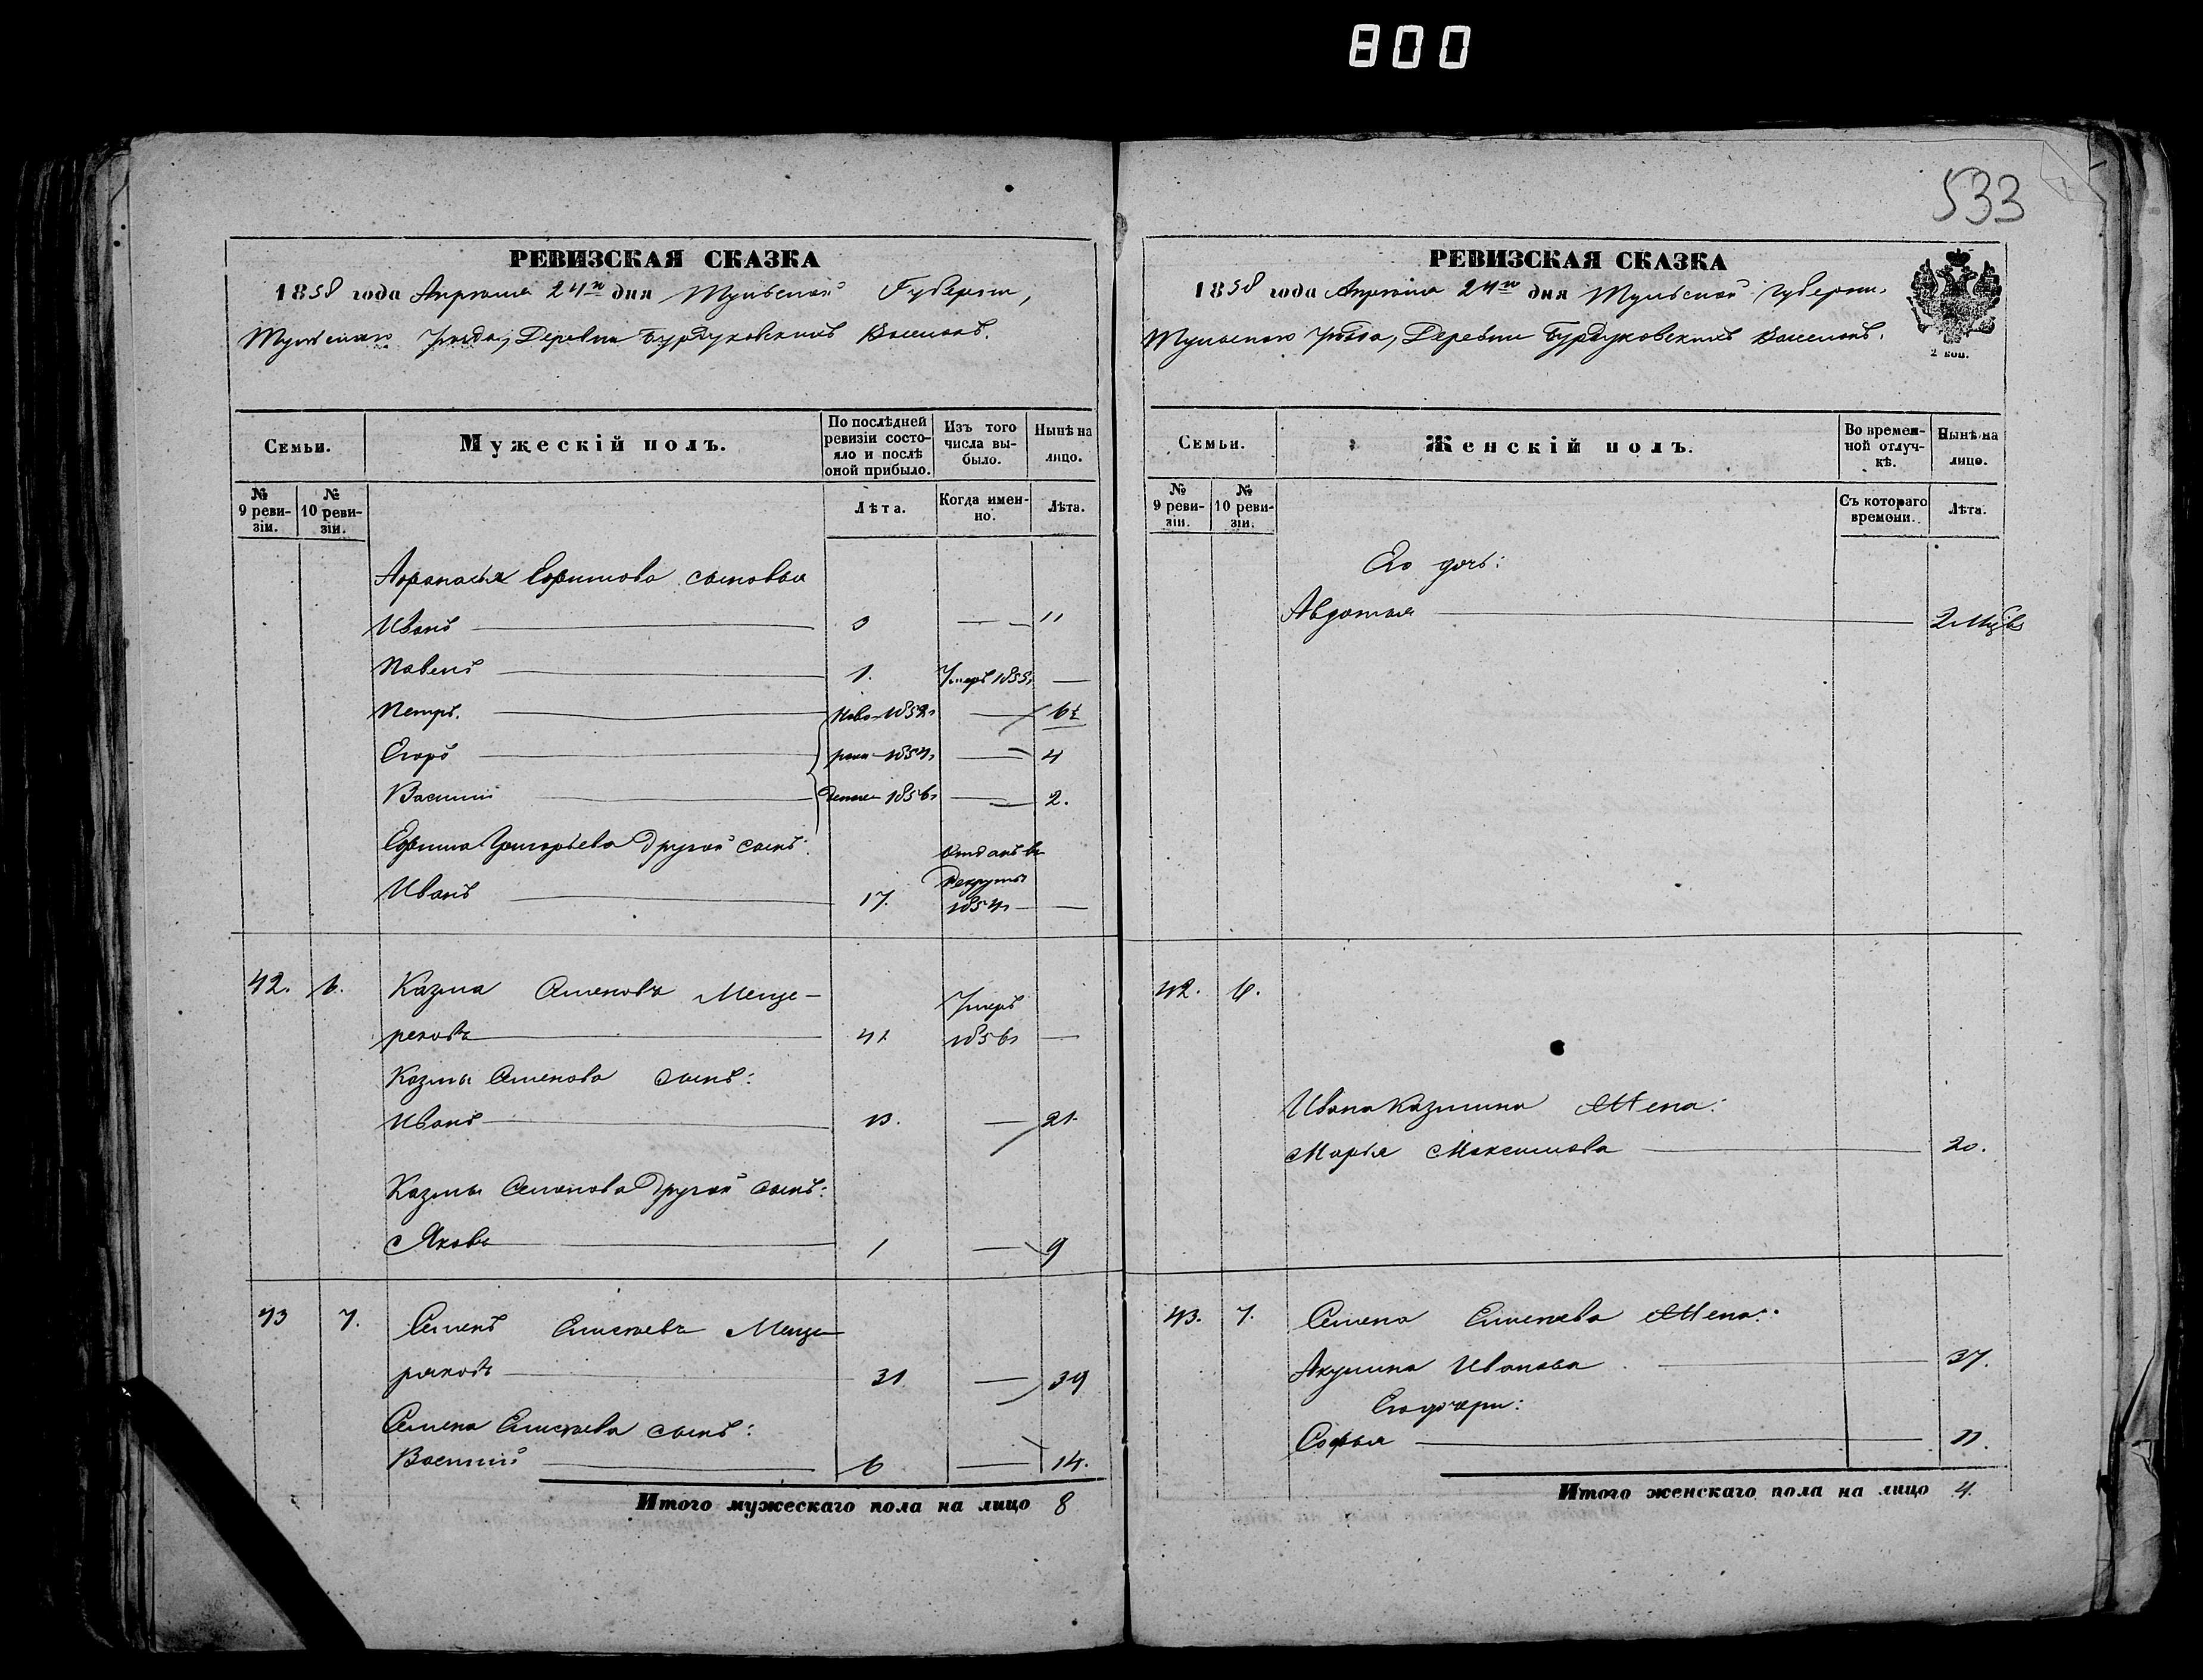 800
533
РЕВИЗСКАЯ СКАЗКА
1858 года Апреля 24го дня Тульской Губернии,
Тульскаго Уезда, Деревни Бурдуковскихъ Выселокъ.
Семьи.
Мужескій полъ.
По послѣдней ревизіи состояло и послѣ оной прибыло.
Изъ того числа выбыло.
Нынѣ на лицо.
№ 9 ревизіи.
№ 10 ревизіи.
Лѣта.
Когда именно.
Лѣта.
Афанасья Ефимова сыновья
Иванъ 3 — 11
Павелъ 1. Умеръ 1855г —
Петръ. Ново 1852г — 6½
Егоръ рож 1854г — 4
Василий 1856г — 2.
Ефима Григорьева другой сынъ:
Иванъ 17. Отданъ въ Рекруты 1854г —
42. 6. Казма Семеновъ Меще-
ряковъ 41 Умеръ 1856г —
Казмы Семенова сынъ:
Иванъ 13. — 21.
Казмы Семенова другой сынъ:
Яковъ 1 — 9
43 7. Семенъ Елисеевъ Меще-
ряковъ 31 — 39
Семена Елисеева сынъ:
Василий 6 — 14.
Итого мужескаго пола на лицо 8
РЕВИЗСКАЯ СКАЗКА
1858 года Апреля 24го дня Тульской Губерни.
Тульскаго Уезда, Деревни Бурдуковскихъ Выселокъ.
2 коп.
Семьи.
Женскій полъ.
Во временной отлучкѣ.
Нынѣ на лицо.
№ 9 ревизіи.
№ 10 ревизіи.
Съ котораго времени.
Лѣта.
Его дочь:
Авдотья 2 мцѣв
42. 6.
Ивана Казмина Жена:
Марья Максимова 20.
43. 7. Семена Елисеева Жена:
Акулина Иванова 37.
Его дочери:
Софья 11.
Итого женскаго пола на лицо 4.